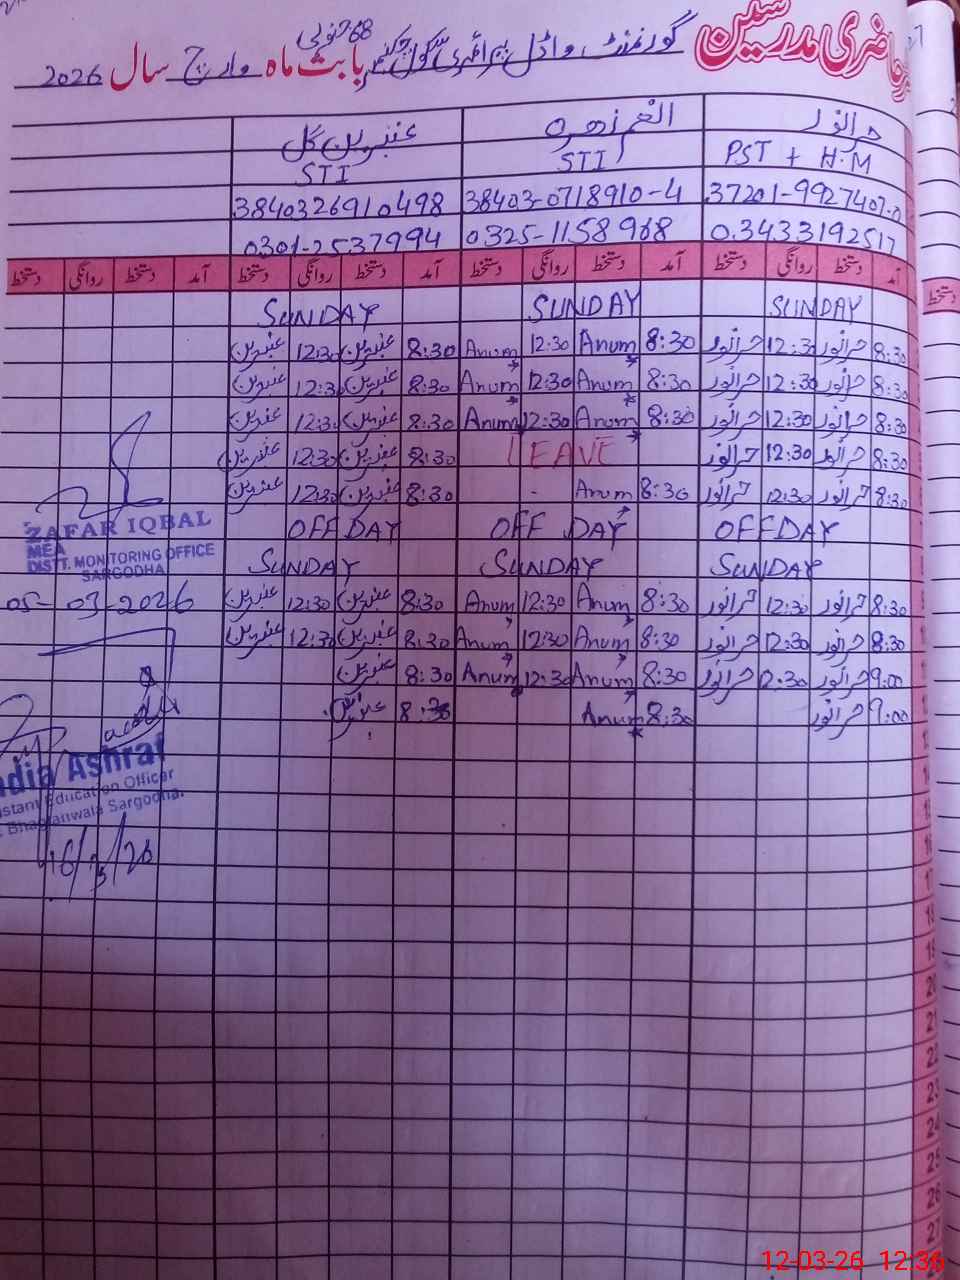 حاضری مدرسین گورنمنٹ ماڈل پرائمری سکول چک نمبر 68 جنوبی بابت ماہ مارچ سال 2026
حرا نور انعم زھرہ عنبرین گل
PST + H.M STI STI
37201-9927407-0 38403-0718910-4 3840326910498
0.3433192517 0325-1158968 0301-2537994
آمد دستخط روانگی دستخط آمد دستخط روانگی دستخط آمد دستخط روانگی دستخط آمد دستخط روانگی دستخط
SUNDAY SUNDAY SUNDAY
8:30 حرا نور 12:30 حرا نور 8:30 Anum 12:30 Anum 8:30 عنبرین 12:30 عنبرین
8:30 حرا نور 12:30 حرا نور 8:30 Anum 12:30 Anum 8:30 عنبرین 12:30 عنبرین
8:30 حرا نور 12:30 حرا نور 8:30 Anum 12:30 Anum 8:30 عنبرین 12:30 عنبرین
8:30 حرا نور 12:30 حرا نور LEAVE 8:30 عنبرین 12:30 عنبرین
8:30 حرا نور 12:30 حرا نور 8:30 Anum - 8:30 عنبرین 12:30 عنبرین
OFF DAY OFF DAY OFF DAY
SUNDAY SUNDAY SUNDAY
8:30 حرا نور 12:30 حرا نور 8:30 Anum 12:30 Anum 8:30 عنبرین 12:30 عنبرین
8:30 حرا نور 12:30 حرا نور 8:30 Anum 12:30 Anum 8:30 عنبرین 12:30 عنبرین
9:00 حرا نور 12:30 حرا نور 8:30 Anum 12:30 Anum 8:30 عنبرین
9:00 حرا نور 8:30 Anum 8:30 عنبرین
ZAFAR IQBAL
MEA
DISTT. MONITORING OFFICE
SARGODHA
05-03-2026
Ashraf
Education Officer
Bhagtanwala Sargodha.
16
17
18
19
20
21
22
23
24
25
26
27
12-03-26 12:36